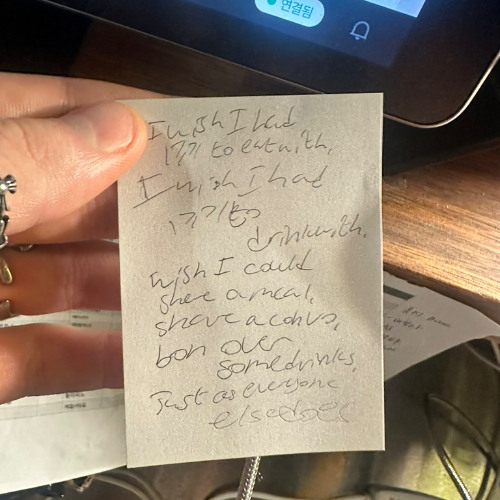 연결됨
I wish I had
to eat with,
I wish I had
to
drink with.
wish I could
share a meal,
share a convo,
bon over
some drinks,
Just as everyone
else does